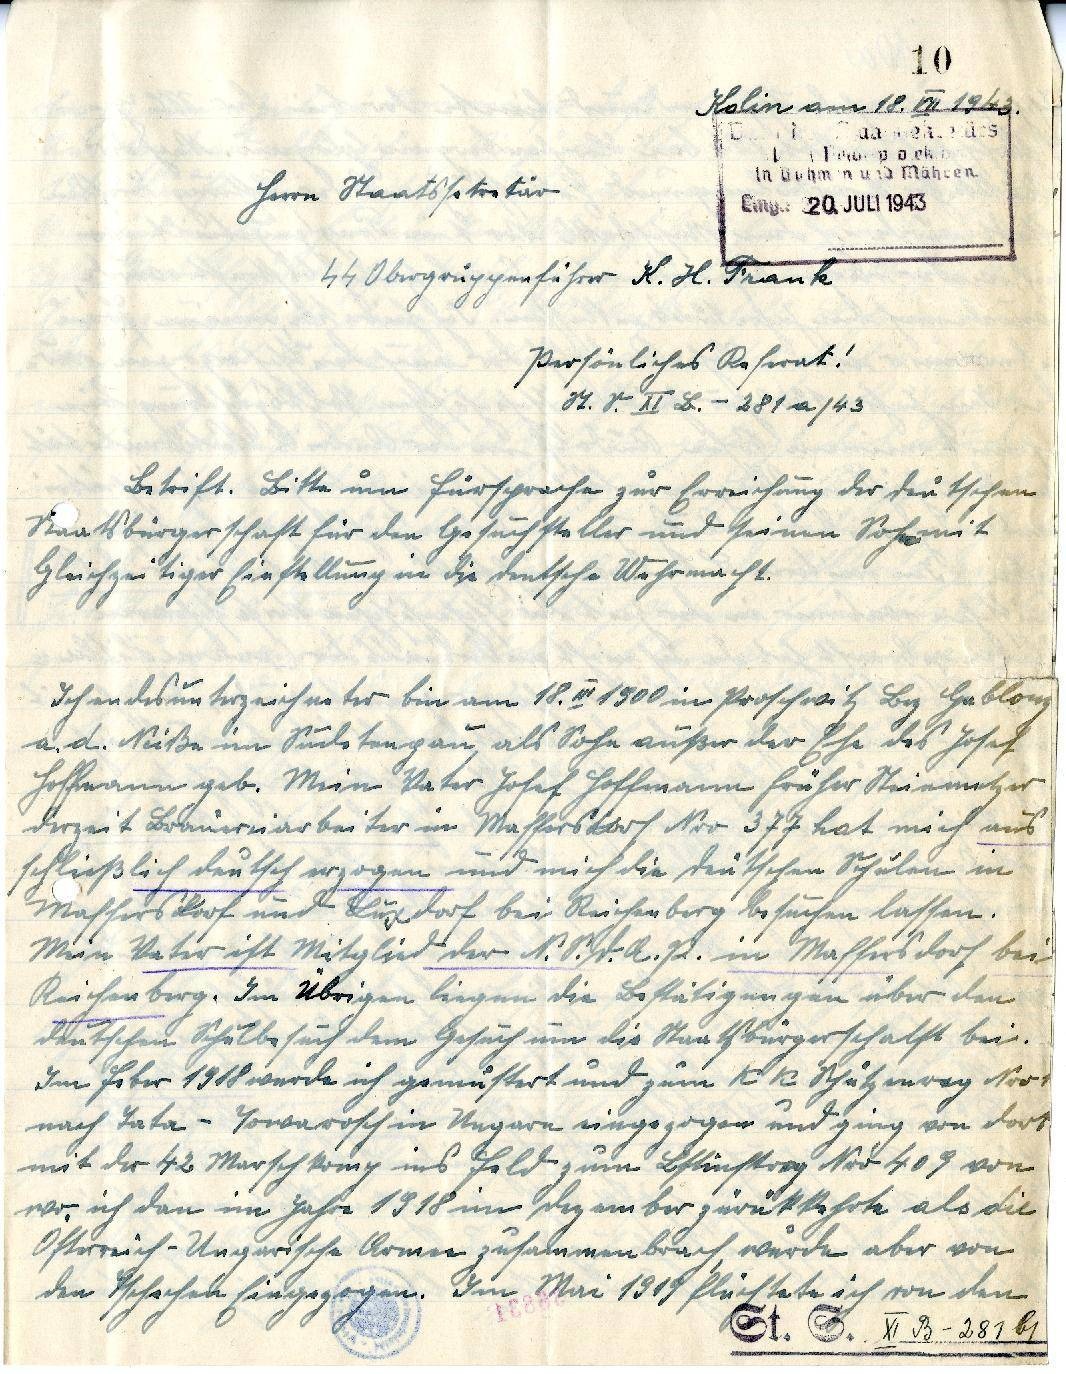 10
Kolin am 18. VII 1943.
in Böhmen und Mähren
Eing. 20. JULI 1943
Herrn Staatssekretär
SS Obergruppenführer K. H. Frank
Persönliches Referat!
St. S. XI B. - 281 a/43
Betrift. Bitte um Fürsprache zur Erreichung der deutschen
Staatsbürgerschaft für den Gesuchsteller und seinen Sohn mit
Gleichzeitiger Einstellung in die deutsche Wehrmacht.
Ich endesunterzeichneter bin am 18. III 1900 in Proschwitz Bez Gablonz
a. d. Neiße im Sudetengau, als Sohn außer der Ehe des Josef
Hoffmann geb. Mein Vater Josef Hoffmann früher Steinmetzer
derzeit Brauereiarbeiter in Maffersdorf Nro 377 hat mich aus
schließlich deutsch erzogen und mich die deutschen Schulen in
Maffersdorf und Luxdorf bei Reichenberg besuchen lassen.
Mein Vater ist Mitglied der N.S.d.A.P. in Maffersdorf bei
Reichenberg. Im Übrigen liegen die Bestätigungen über den
deutschen Schulbesuch dem Gesuch um die Staatsbürgerschafft bei.
Im Feber 1918 wurde ich gemustert und zum K K Schützenreg Nro
nach Tata - Towarosch in Ungarn eingezogen und ging von dort
mit der 42 Marschkomp ins Feld zum Nro 409 von
wo, ich dan im Jahre 1918 im Dezember zurükkehrte als die
Österreich-Ungarische Armee zusammenbrach, wurde aber von
den Tschechen Eingezogen. Im Mai 1919 flüchtete ich von den
St. S. XI B - 281 b/